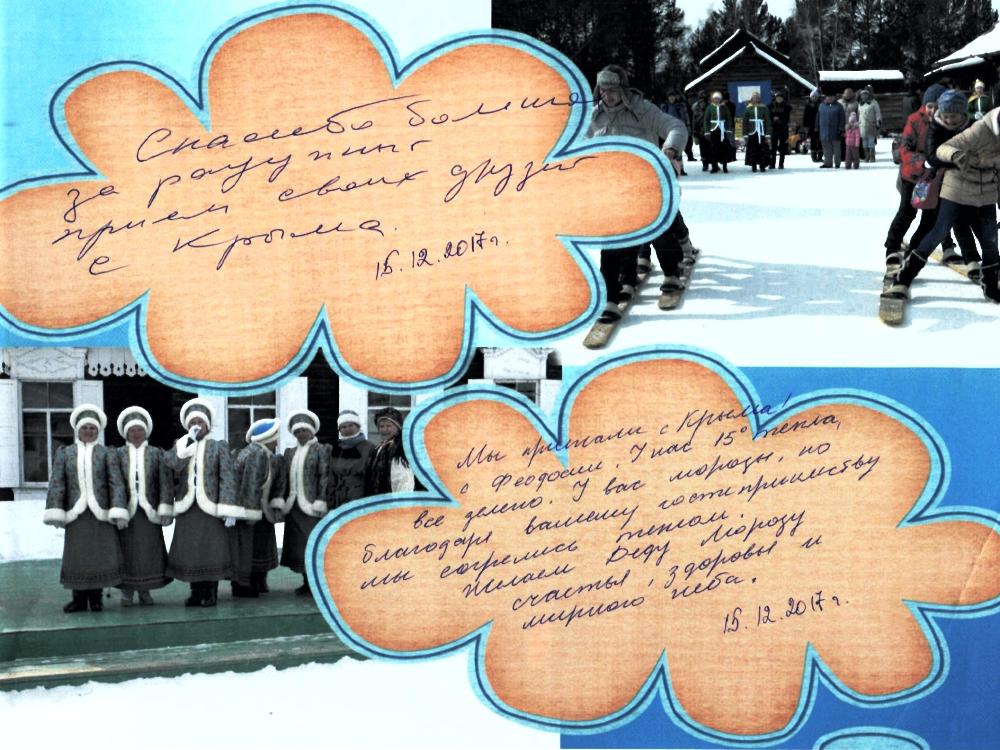 Спасибо большое
за радушный
прием своих друзей
с Крыма.
15.12.2017г.
Мы приехали с Крыма!
с Феодосии. У нас 15° тепла,
все зелено. У вас морозы, но
благодаря вашему гостиприимству
мы согрелись теплом.
Желаем Деду Морозу
счастья, здоровья и
мирного неба.
15.12.2017г.